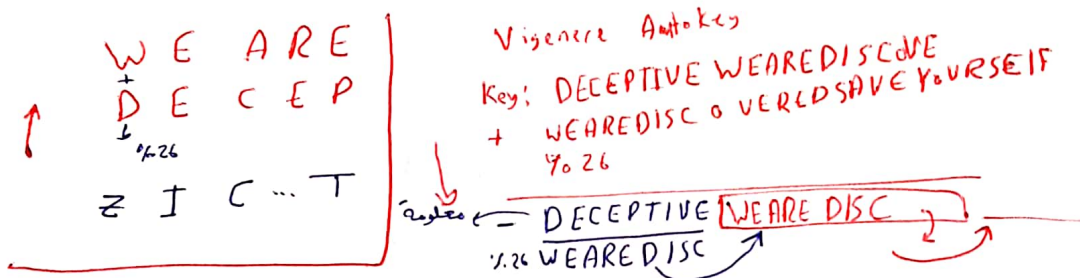 W E A R E
+
D E C E P
% 26
Z I C ... T
Vigenere Autokey
Key: DECEPTIVE WEAREDISCOVE
+ WEAREDISC O VEREDSAVE YOURSELF
% 26
= DECEPTIVE WEARE DISC
% 26 WEAREDISC